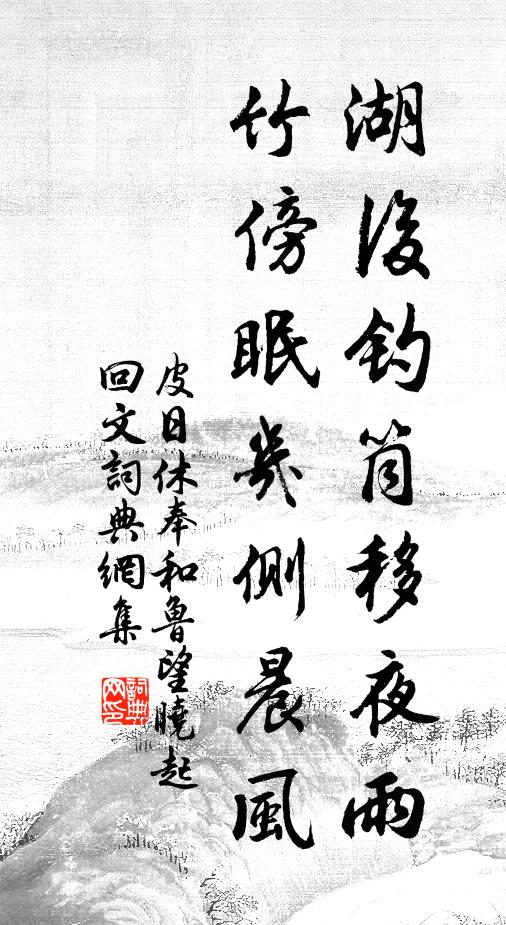 湖後釣筒移夜雨
竹傍眠幾側晨風
皮日休奉和魯望曉起
回文詞典網集
詞典
网印